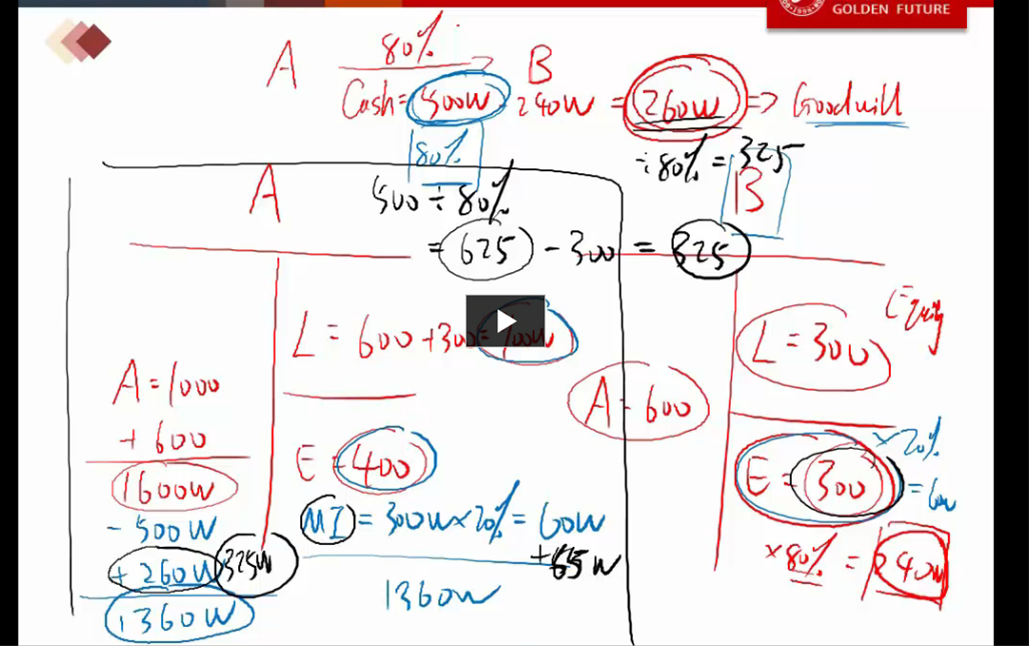 GOLDEN FUTURE
A 80% B
Cash = 500W - 240W = 260W => Goodwill
80%
÷ 80% = 325
A
500 ÷ 80%
B
= 625 - 300 = 325
L = 600 + 300 = 900W
A = 1000
+ 600
1600W
- 500W
+ 260W 325W
1360W
E = 400
MI = 300W × 20% = 60W
+ 65W
1360W
Equity
L = 300
A = 600
× 20%
E = 300 = 60W
× 80% = 240W